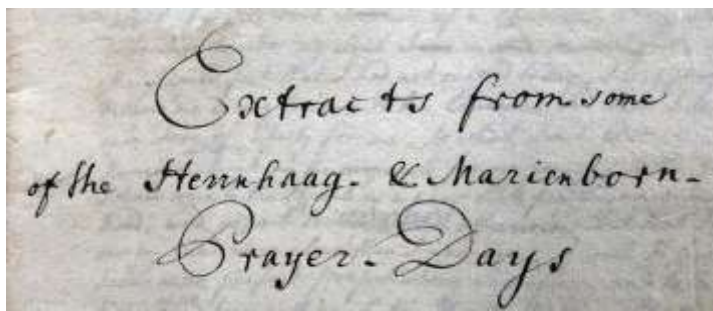 Extracts from some
of the Herrnhaag- & Marienborn-
Prayer-Days